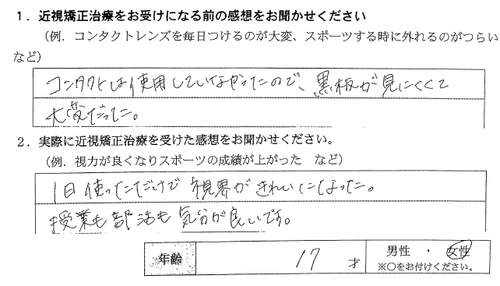 １．近視矯正治療をお受けになる前の感想をお聞かせください
（例．コンタクトレンズを毎日つけるのが大変、スポーツする時に外れるのがつらい
など）
コンタクトは使用していなかったので、黒板が見にくくて
大変だった。
２．実際に近視矯正治療を受けた感想をお聞かせください。
（例．視力が良くなりスポーツの成績が上がった　など）
1日使っただけで視界がきれいになった。
授業も部活も気分が良いです。
年齢　17　才　男性　・　女性
※○をお付けください。